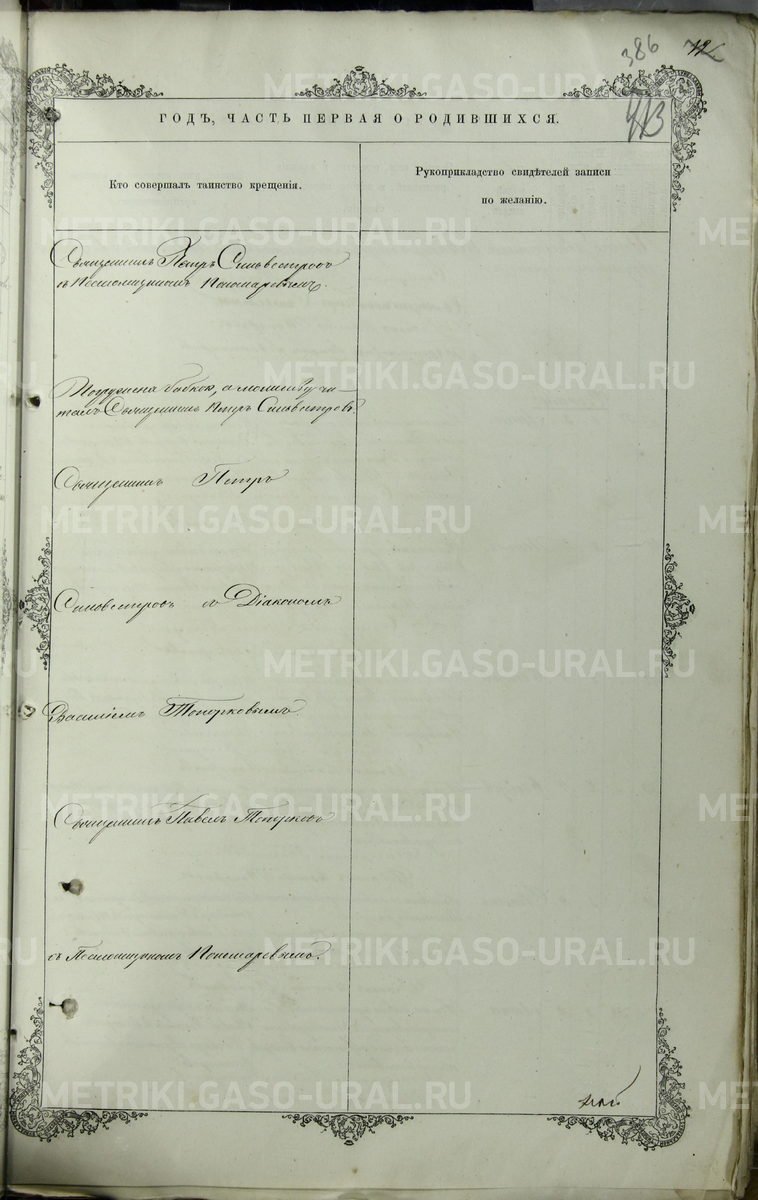 386
12
ГОДЪ, ЧАСТЬ ПЕРВАЯ О РОДИВШИХСЯ.
Кто совершалъ таинство крещенія.
Рукоприкладство свидѣтелей записи
по желанію.
Священникъ Петръ Сильвестровъ
съ Псаломщикомъ Пономаревымъ.
Погружена бабкою, а молитву чи-
талъ Священникъ Петръ Сильвестровъ
Священникъ Петръ
Сильвестровъ съ Діакономъ
Василіемъ Топорковымъ.
Священникъ Павелъ Топорковъ
съ Псаломщикомъ Пономаревымъ.
METRIKI.GASO-URAL.RU